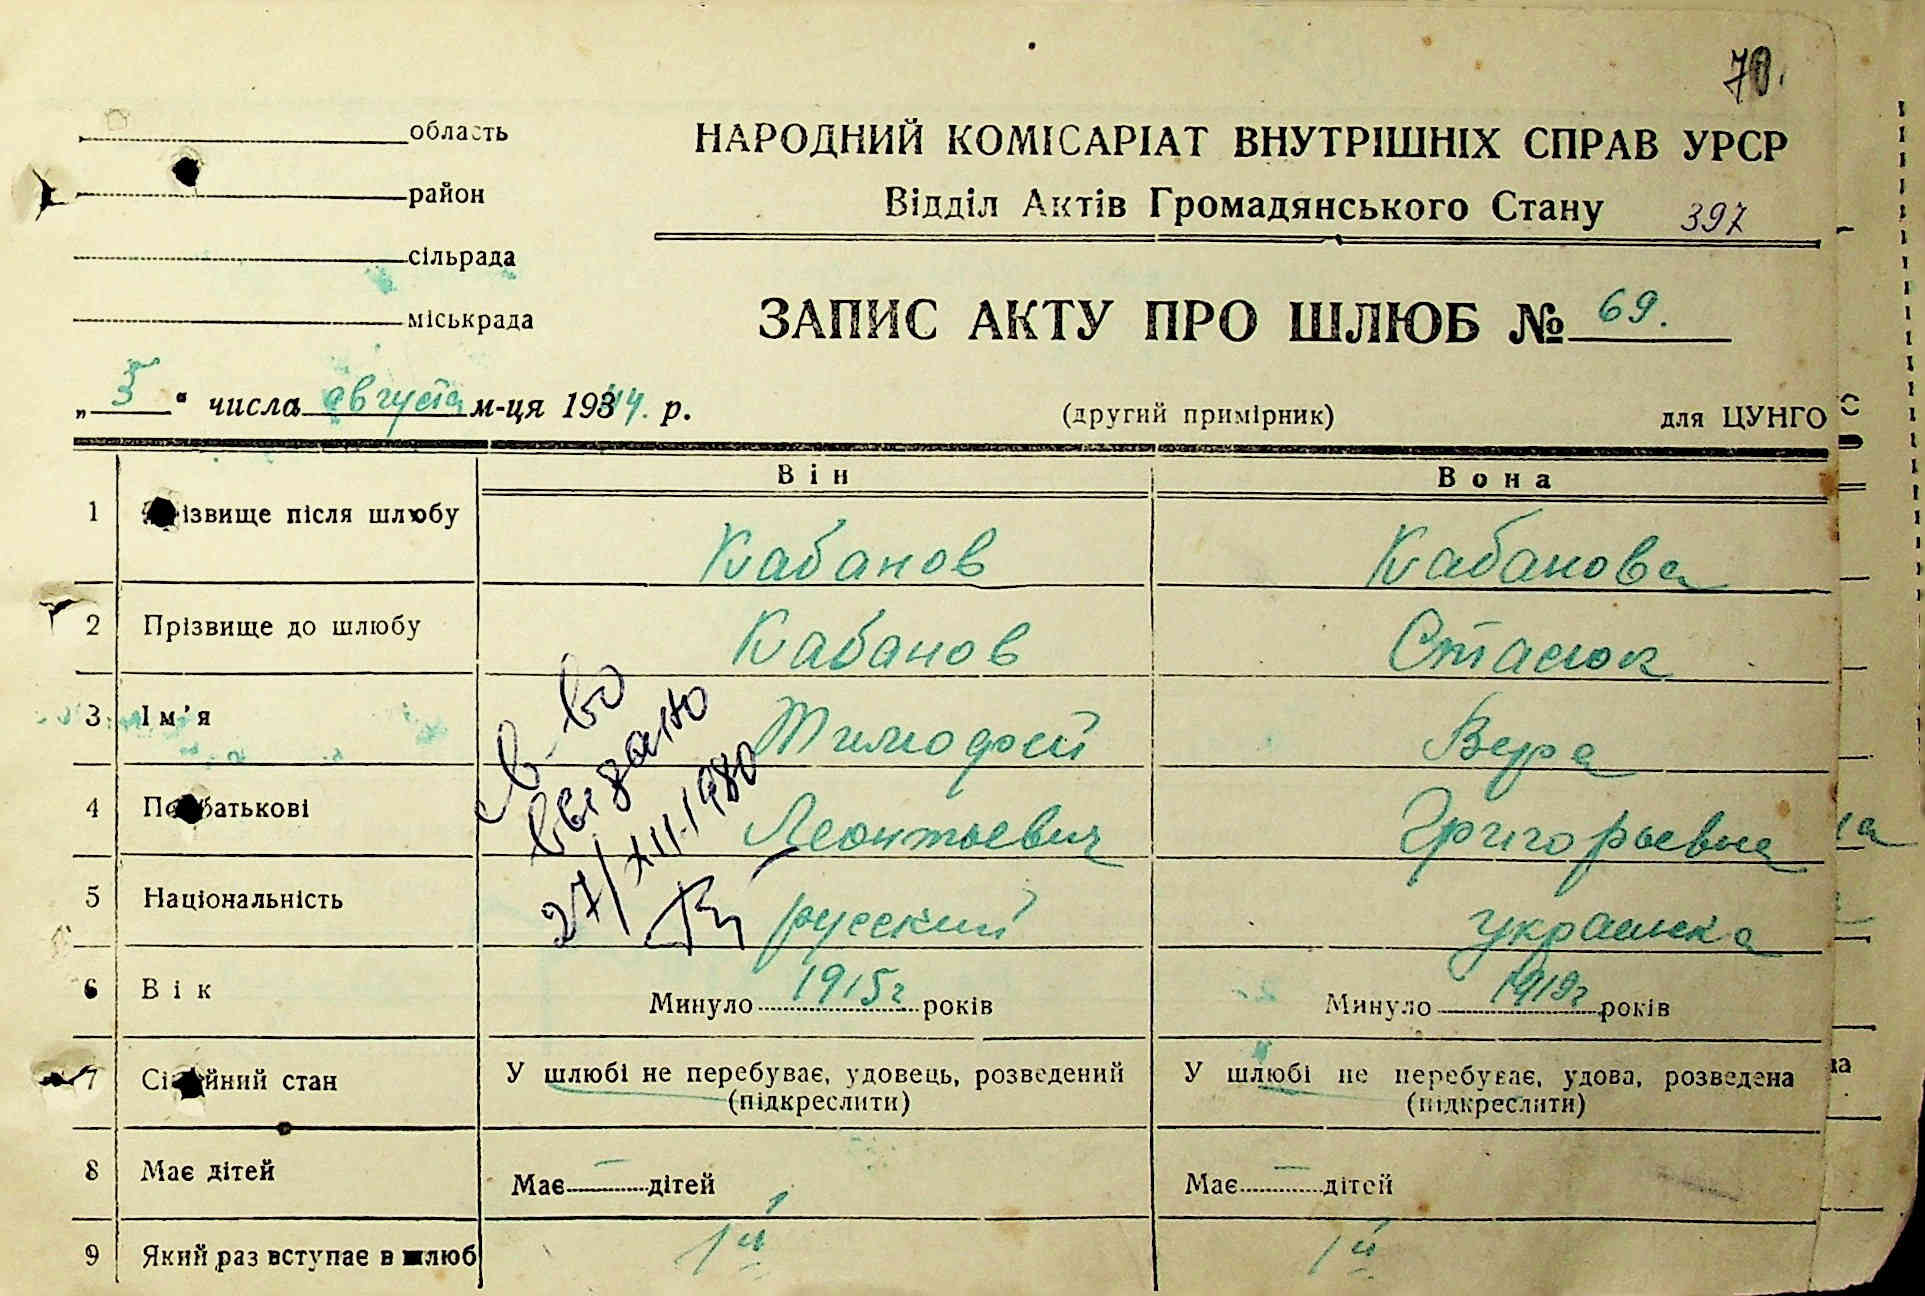 70.
область
район
сільрада
міськрада
НАРОДНИЙ КОМІСАРІАТ ВНУТРІШНІХ СПРАВ УРСР
Відділ Актів Громадянського Стану 397
ЗАПИС АКТУ ПРО ШЛЮБ № 69.
„ 5 " числа августа м-ця 1944. р.
(другий примірник) для ЦУНГО
Він Вона
1 ізвище після шлюбу Кабанов Кабанова
2 Прізвище до шлюбу Кабанов Стасюк
3 Ім'я Тимофей Вера
4 По батькові Леонтьевич Григорьевна
5 Національність русский украинка
6 Вік Минуло 1915г років Минуло 1919г років
7 Сімейний стан У шлюбі не перебуває, удовець, розведений (підкреслити) У шлюбі не перебуває, удова, розведена (підкреслити)
8 Має дітей Має — дітей Має — дітей
9 Який раз вступає в шлюб 1й 1й
св-во
выдано
27/XII-1980